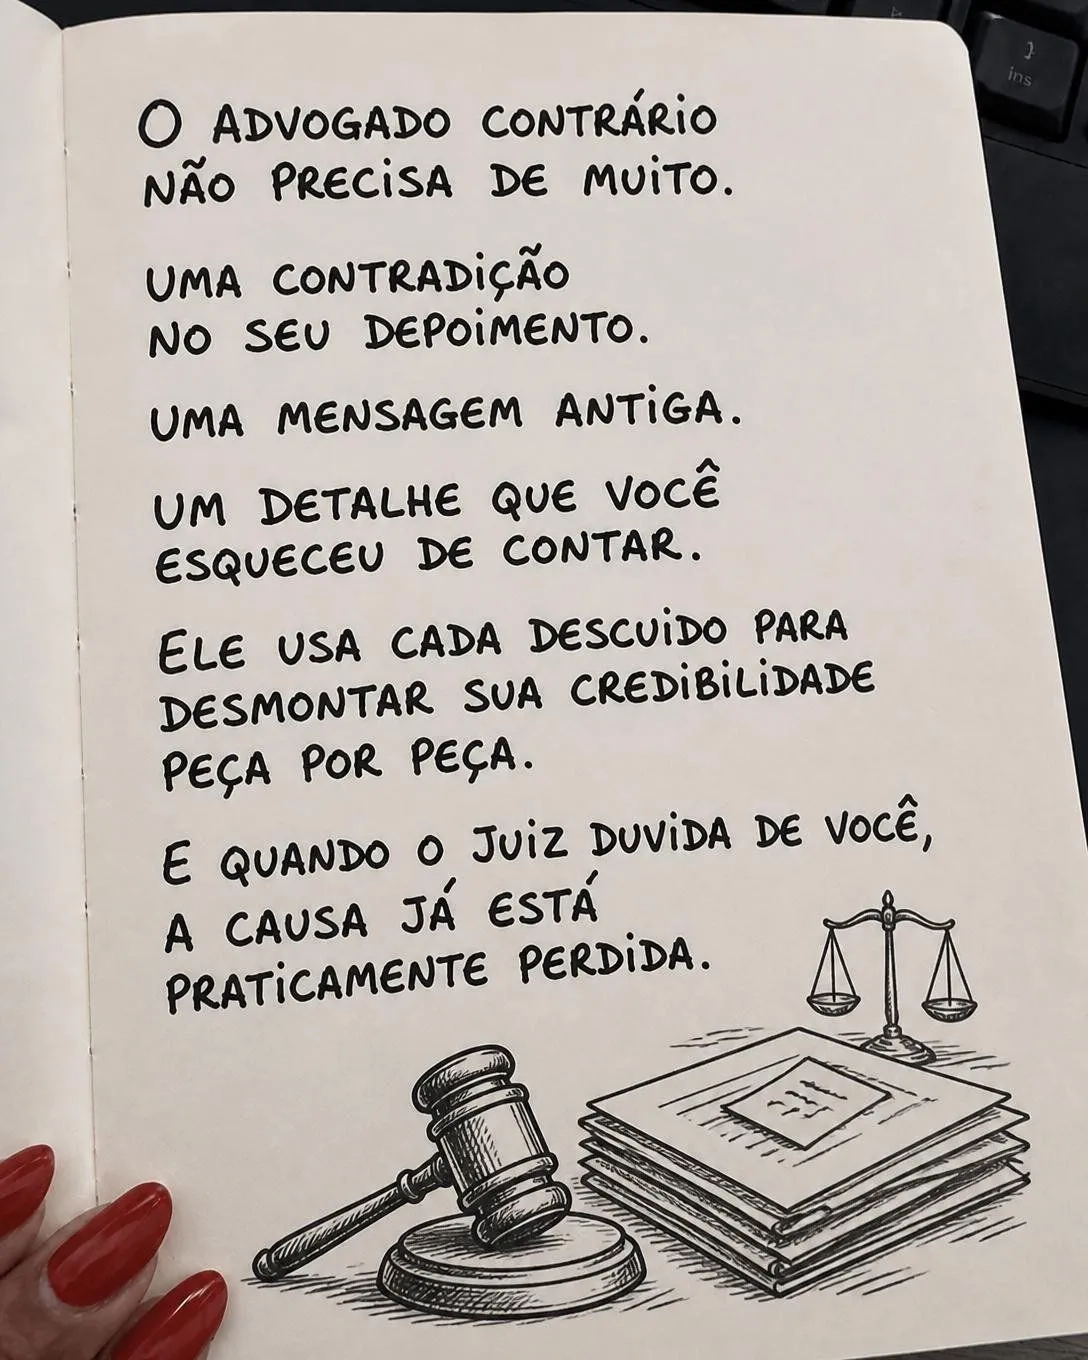 O ADVOGADO CONTRÁRIO
NÃO PRECISA DE MUITO.
UMA CONTRADIÇÃO
NO SEU DEPOIMENTO.
UMA MENSAGEM ANTIGA.
UM DETALHE QUE VOCÊ
ESQUECEU DE CONTAR.
ELE USA CADA DESCUIDO PARA
DESMONTAR SUA CREDIBILIDADE
PEÇA POR PEÇA.
E QUANDO O JUIZ DUVIDA DE VOCÊ,
A CAUSA JÁ ESTÁ
PRATICAMENTE PERDIDA.
}
ins